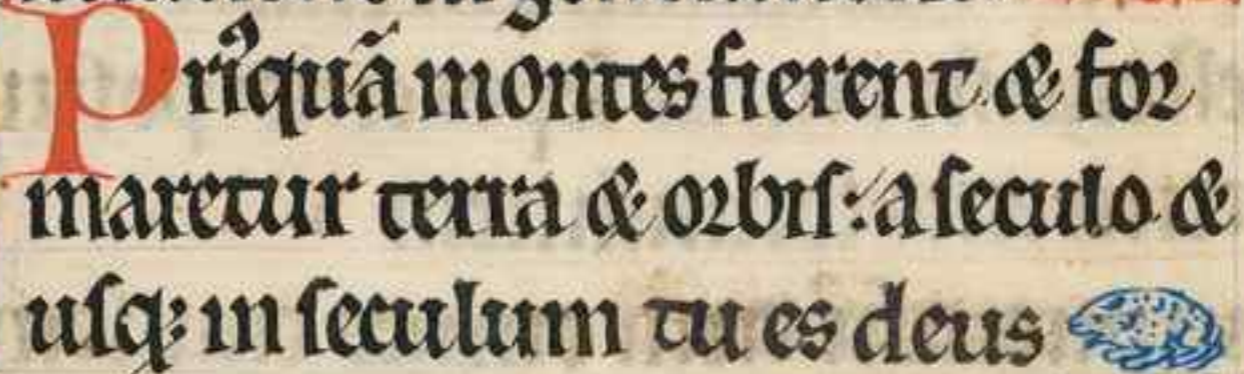 Priꝰquā montes fierent & for
maretur terra & orbis: a seculo &
usq; in seculum tu es deus